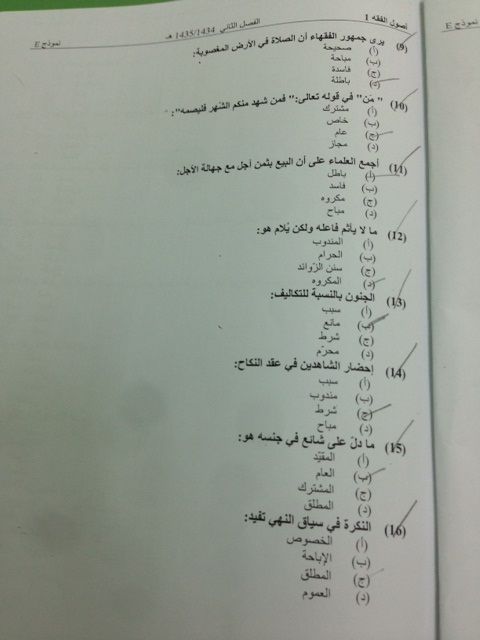 أصول الفقه 1
الفصل الثاني 1435/1434 هـ
نموذج E
نموذج E
(9) يرى جمهور الفقهاء أن الصلاة في الأرض المغصوبة:
(أ) صحيحة
(ب) مباحة
(ج) فاسدة
(د) باطلة
(10) " مَن" في قوله تعالى:" فمن شهد منكم الشهر فليصمه":
(أ) مشترك
(ب) خاص
(ج) عام
(د) مجاز
(11) أجمع العلماء على أن البيع بثمن آجل مع جهالة الأجل:
(أ) باطل
(ب) فاسد
(ج) مكروه
(د) مباح
(12) ما لا يأثم فاعله ولكن يُلام هو:
(أ) المندوب
(ب) الحرام
(ج) سنن الزوائد
(د) المكروه
(13) الجنون بالنسبة للتكاليف:
(أ) سبب
(ب) مانع
(ج) شرط
(د) محرّم
(14) إحضار الشاهدين في عقد النكاح:
(أ) سبب
(ب) مندوب
(ج) شرط
(د) مباح
(15) ما دلّ على شائع في جنسه هو:
(أ) المقيّد
(ب) العام
(ج) المشترك
(د) المطلق
(16) النكرة في سياق النهي تفيد:
(أ) الخصوص
(ب) الإباحة
(ج) المطلق
(د) العموم